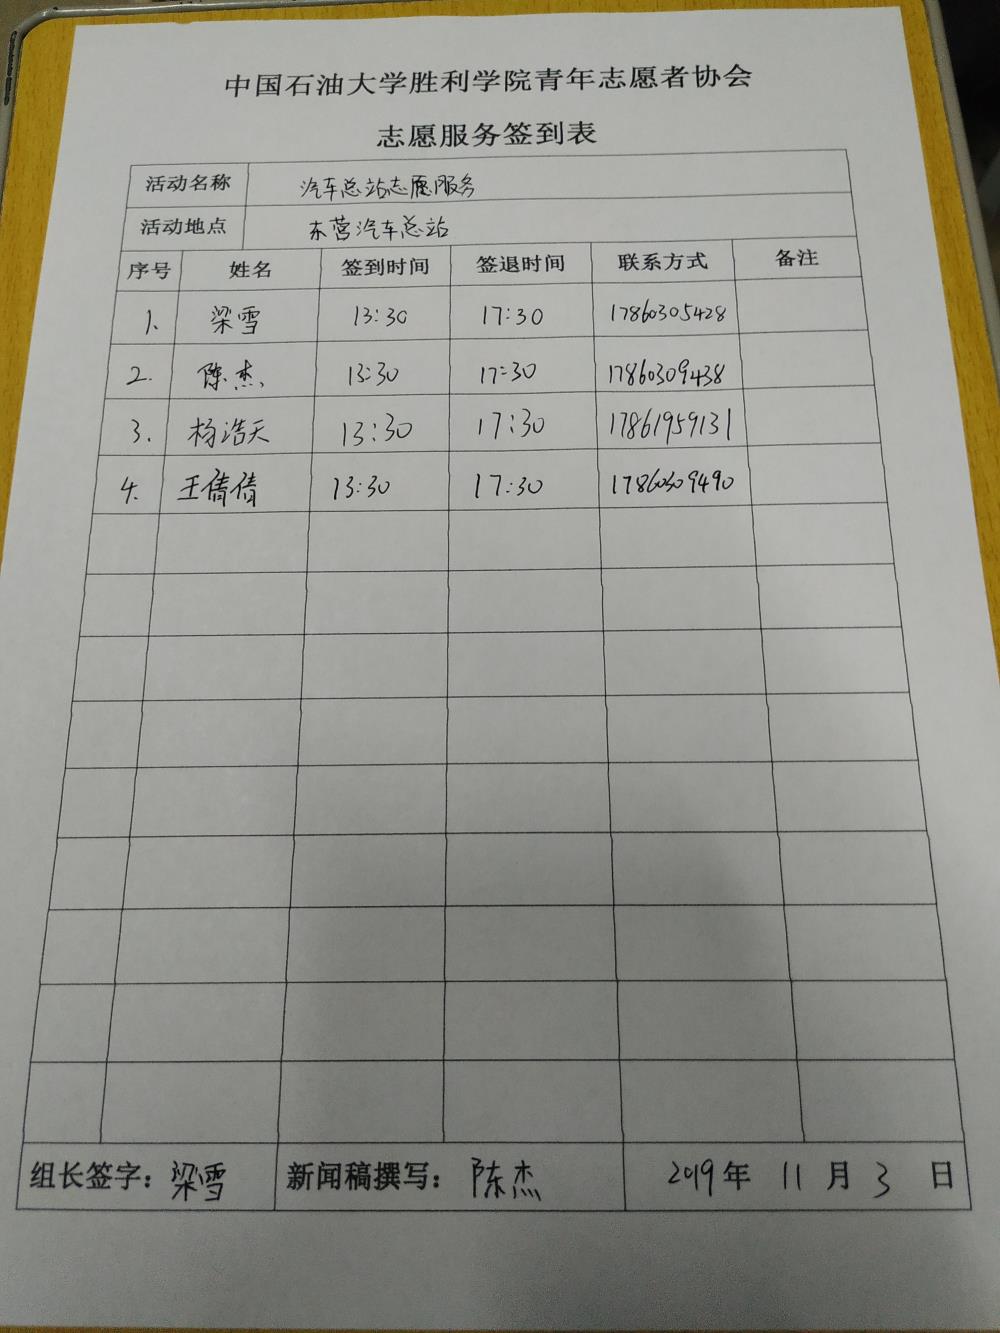 中国石油大学胜利学院青年志愿者协会
志愿服务签到表
活动名称 汽车总站志愿服务
活动地点 东营汽车总站
序号 姓名 签到时间 签退时间 联系方式 备注
1. 梁雪 13:30 17:30 17860305428
2. 陈杰 13:30 17:30 17860309438
3. 杨浩天 13:30 17:30 17861959131
4. 王倩倩 13:30 17:30 17860309490
组长签字：梁雪 新闻稿撰写：陈杰 2019年 11 月 3 日